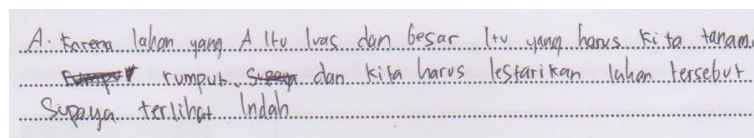 A. Karena lahan yang A Itu luas dan besar Itu yang harus kita tanam
rumput. dan kita harus lestarikan lahan tersebut.
Supaya terlihat Indah